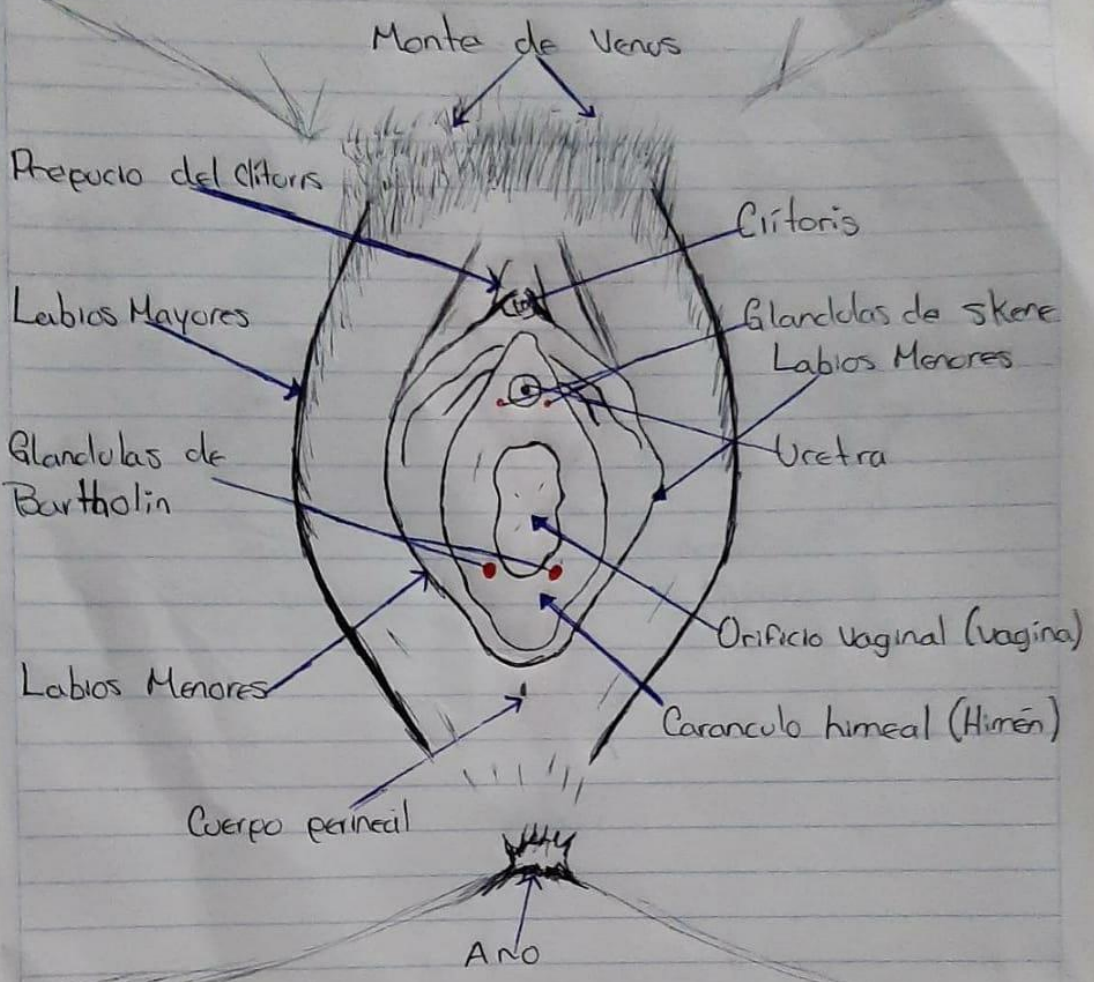 Monte de Venus
Prepucio del clitoris
Clítoris
Labios Mayores
Glandulas de skene
Labios Menores
Glandulas de
Bartholin
Uretra
Orificio vaginal (vagina)
Labios Menores
Caranculo himeal (Himén)
Cuerpo perineal
Ano